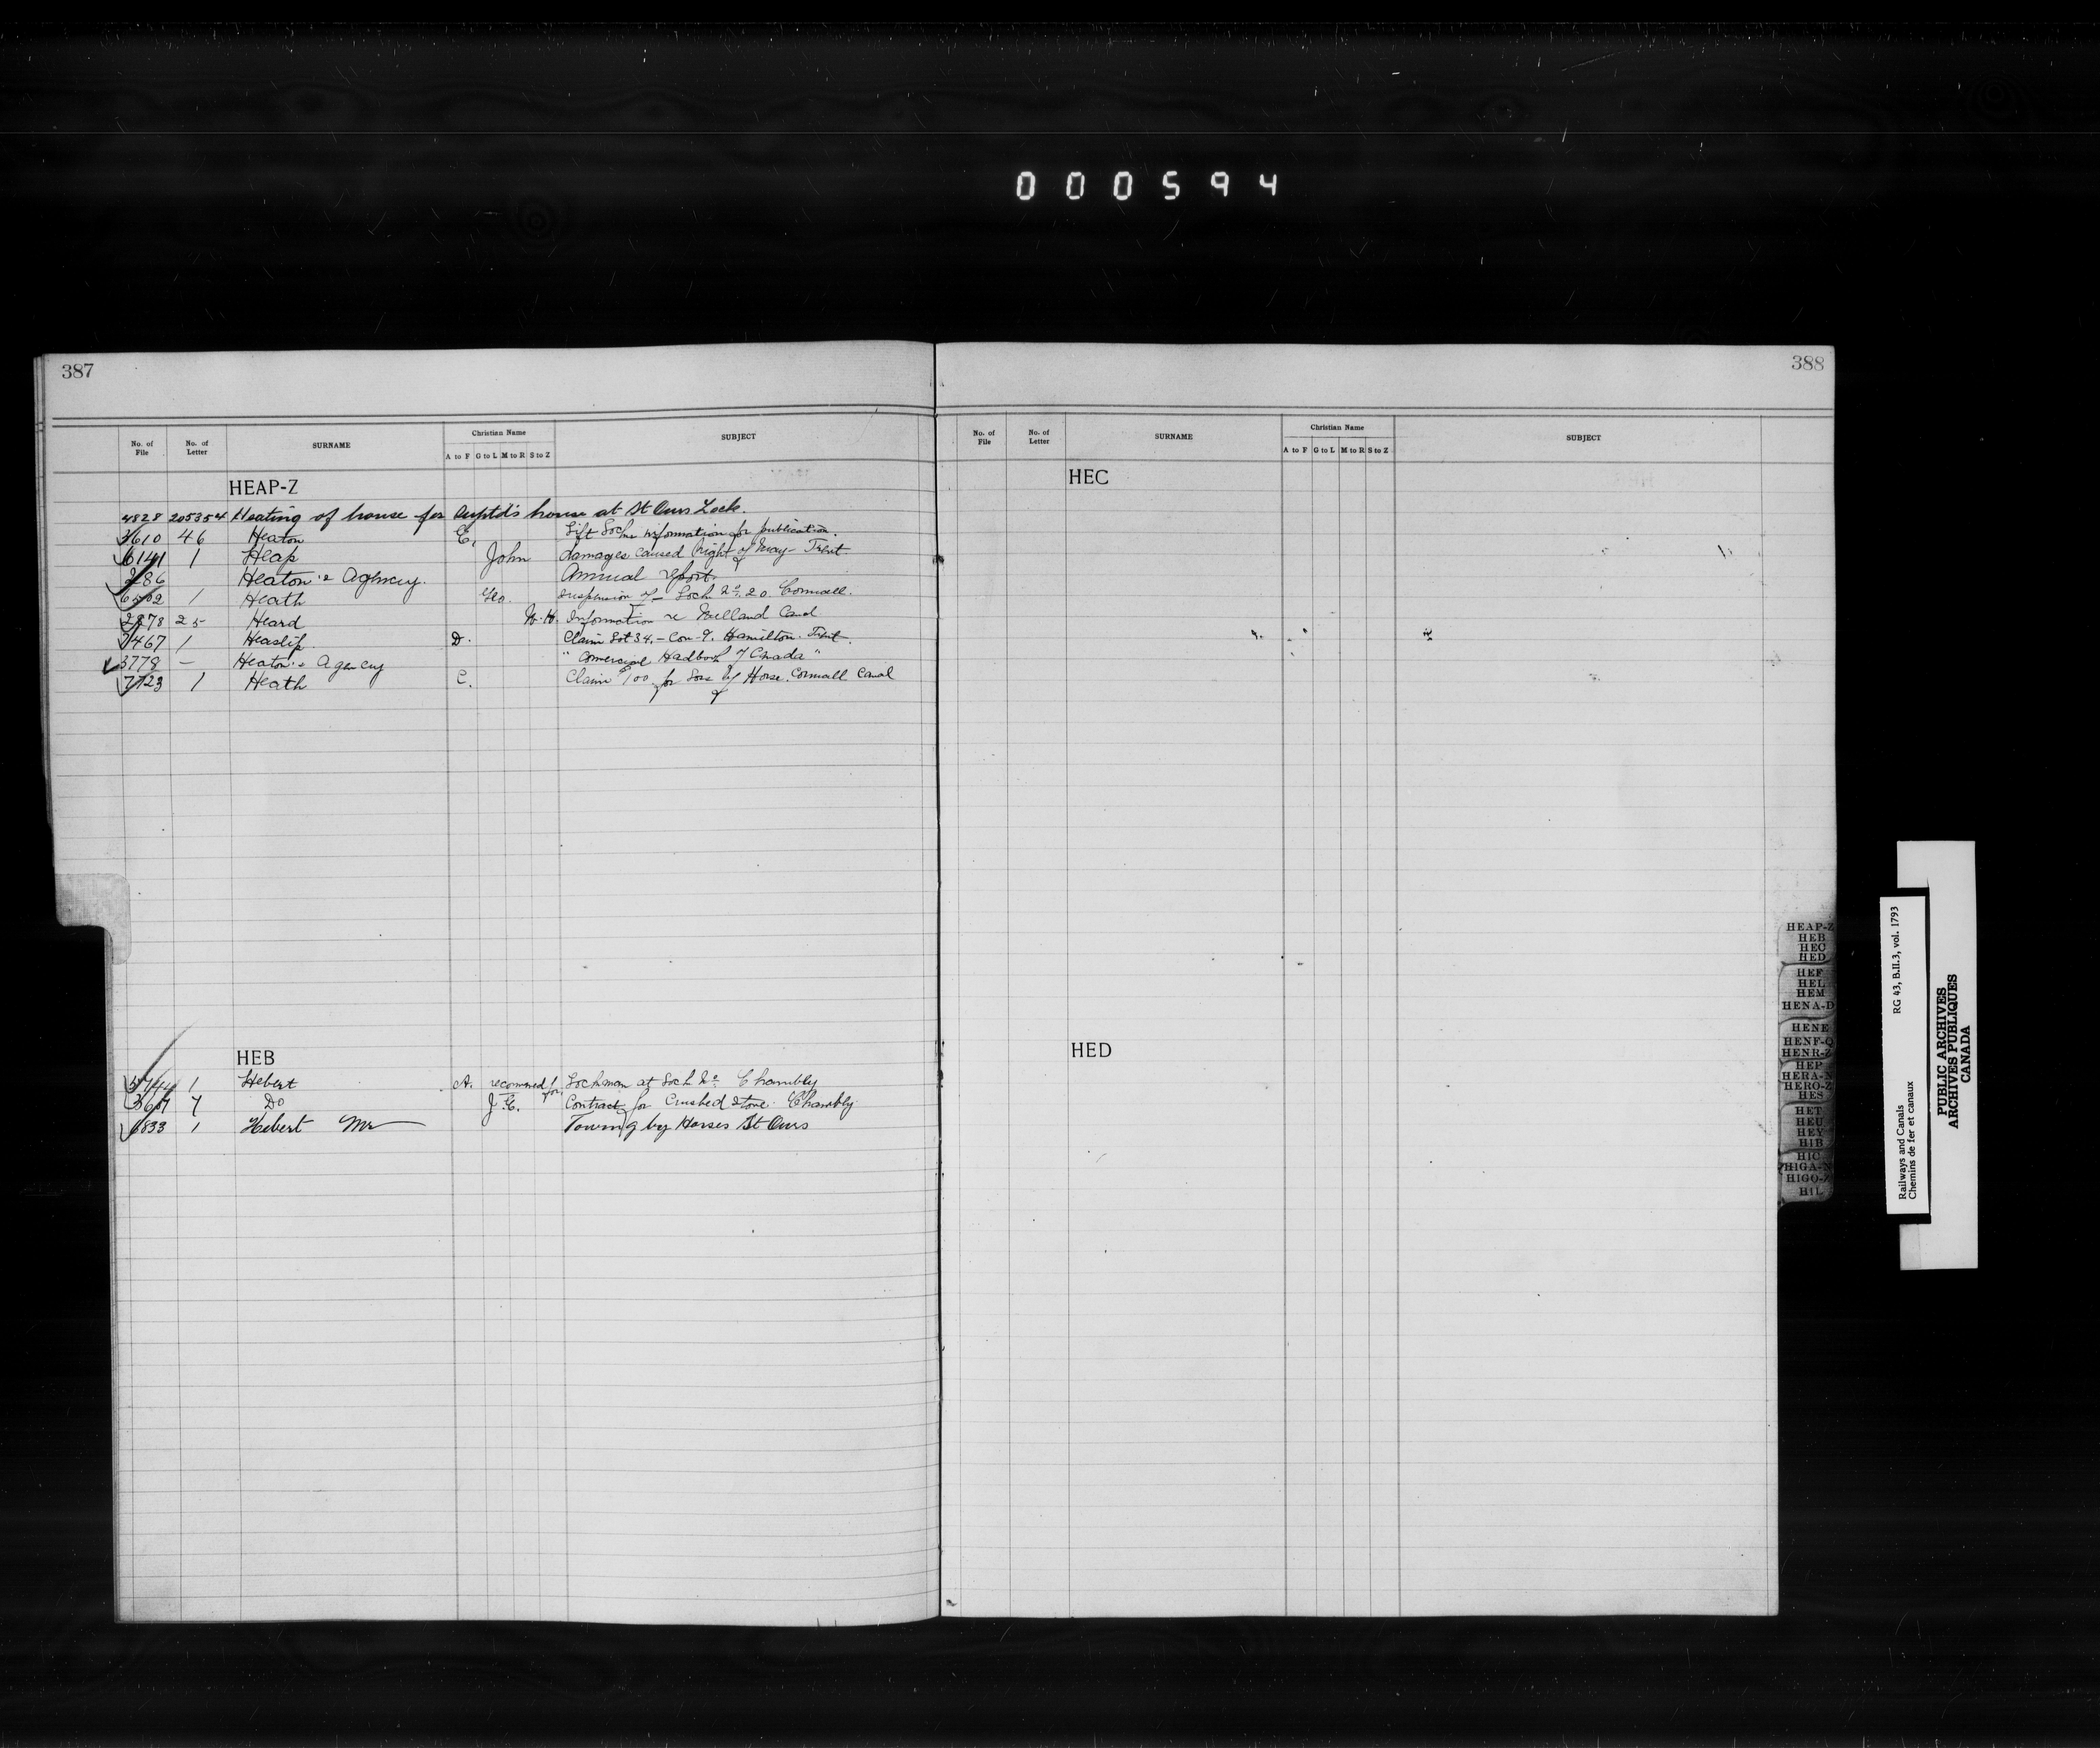 000594
387
No. of File No. of Letter SURNAME Christian Name A to F G to L M to R S to Z SUBJECT
HEAP-Z
4828 205354 Heating of house for Suptd's house at St Ours Lock.
3610 46 Heaton E. Lift Locks information for publication.
6141 1 Heap John damages caused Right of Way - Trent
286 Heaton's Agency. Annual report
6502 1 Heath Geo. suspension of - Lock No. 20 Cornwall.
2878 25 Heard W.H. Information re Welland Canal
7467 1 Heaslip D. Claim Lot 34. - Con - 9. Hamilton. Trent.
3778 - Heaton's Agency "Comercial Hadbook of Canada"
7723 1 Heath C. Claim $100 for Loss of Horse. Cornwall Canal
HEB
5744 1 Hebert A. recommed for Lockman at Lock No. Chambly
3607 7 Do J.E. Contract for Crushed Stone. Chambly
6833 1 Hebert Mr Towing by Horses St Ours
388
No. of File No. of Letter SURNAME Christian Name A to F G to L M to R S to Z SUBJECT
HEC
HED
HEAP-Z
HEB
HEC
HED
HEF
HEL
HEM
HENA-D
HENE
HENF-Q
HENR-Z
HEP
HERA-N
HERO-Z
HES
HET
HEU
HEY
HIB
HIC
HIGA-N
HIGO-Z
HIL
Railways and Canals RG 43, B.II.3, vol. 1793
Chemins de fer et canaux
PUBLIC ARCHIVES
ARCHIVES PUBLIQUES
CANADA